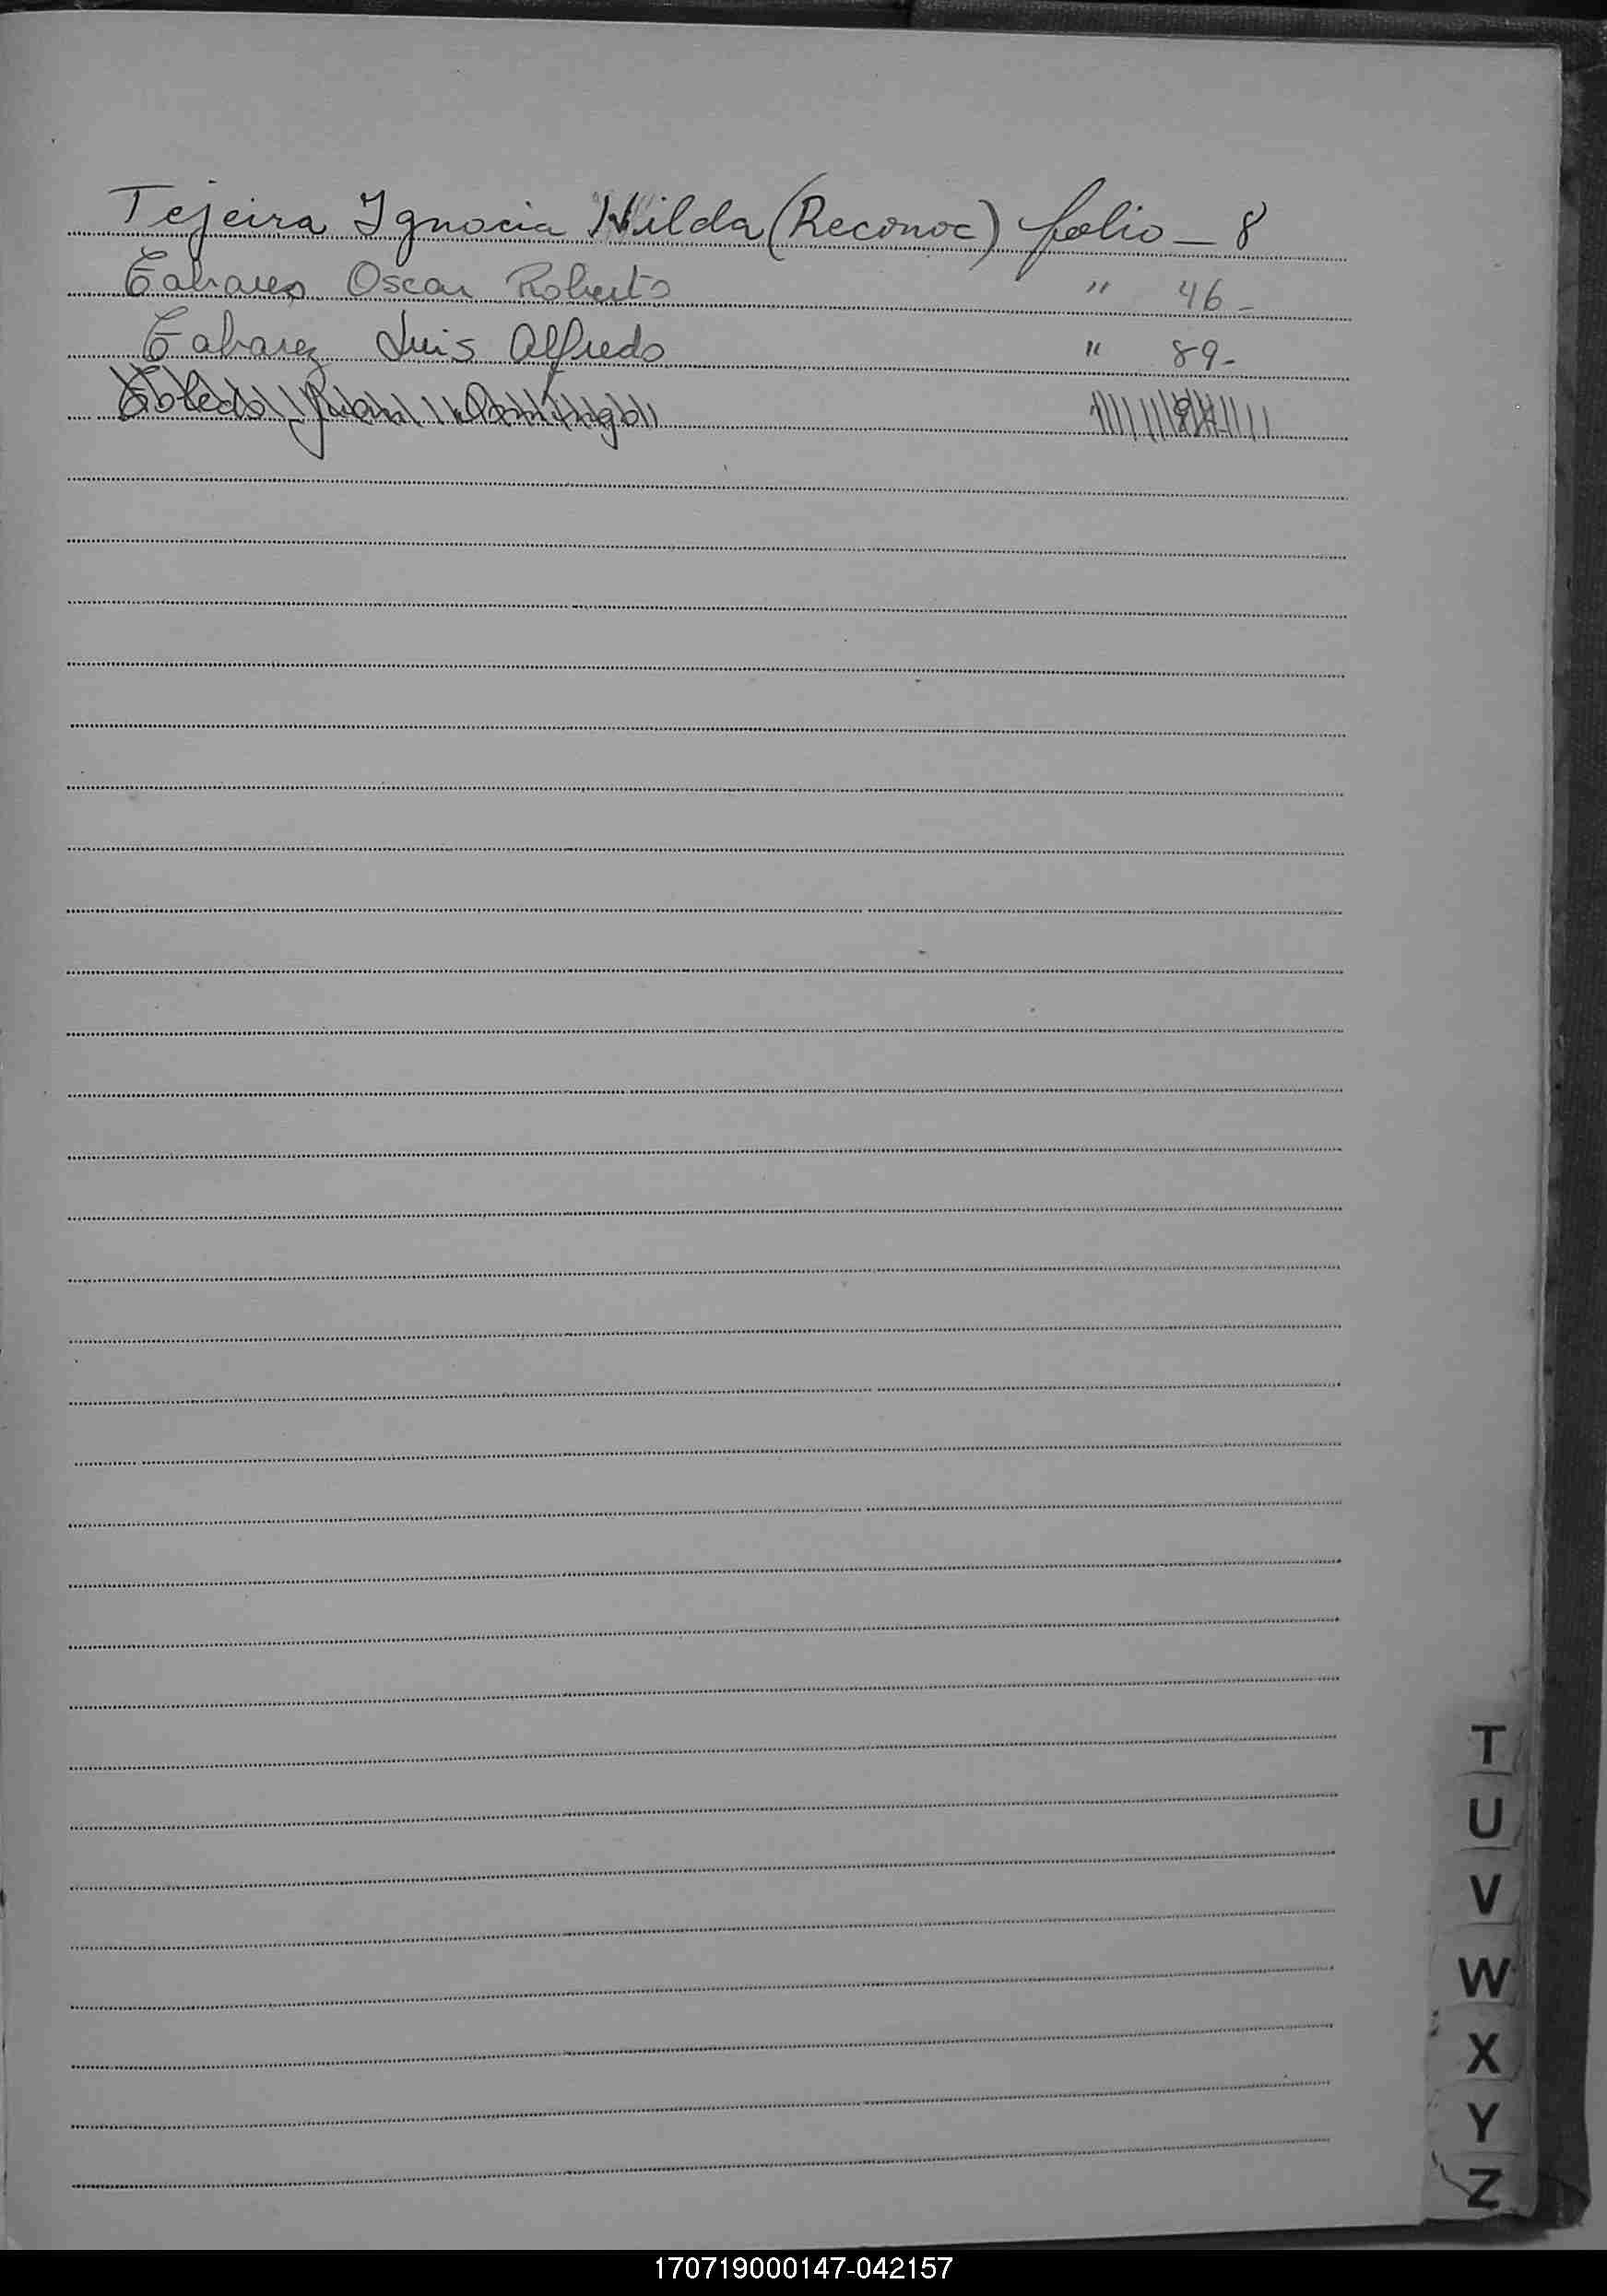 Tejeira Ignacia Hilda (Reconoc) folio - 8
Tabares Oscar Roberto " 46 -
Tabarez Luis Alfredo " 89 -
Toledo Juan Domingo
T
U
V
W
X
Y
Z
170719000147-042157